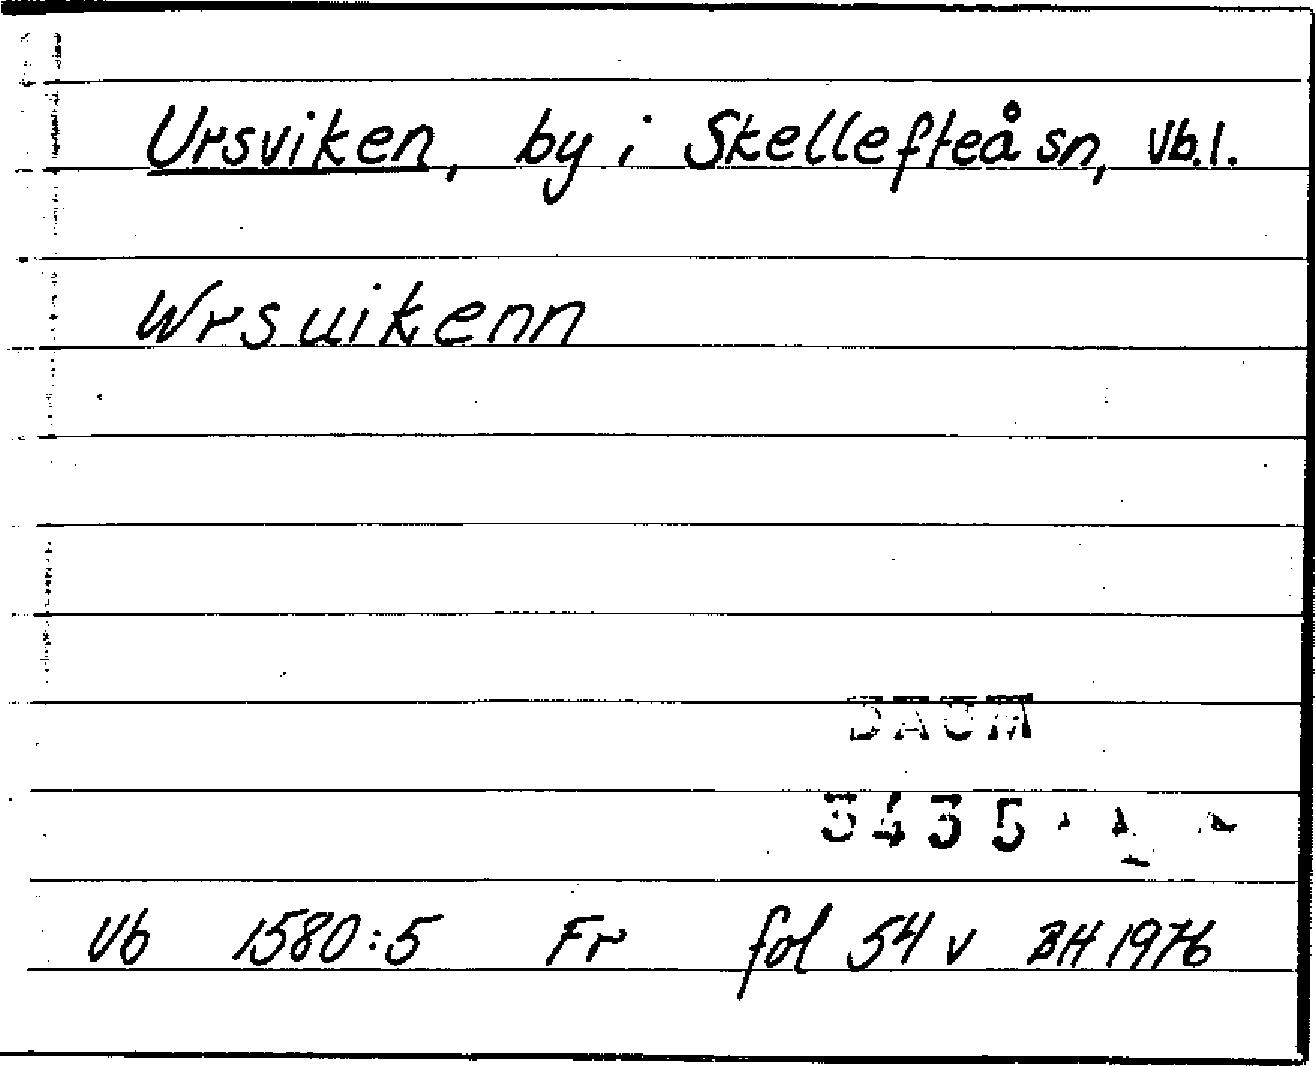 Ursviken, by i Skellefteå sn, Vb.l.
Wrsuikenn
DAUM
3435
Vb 1580:5 Fr fol 54 v BH 1976